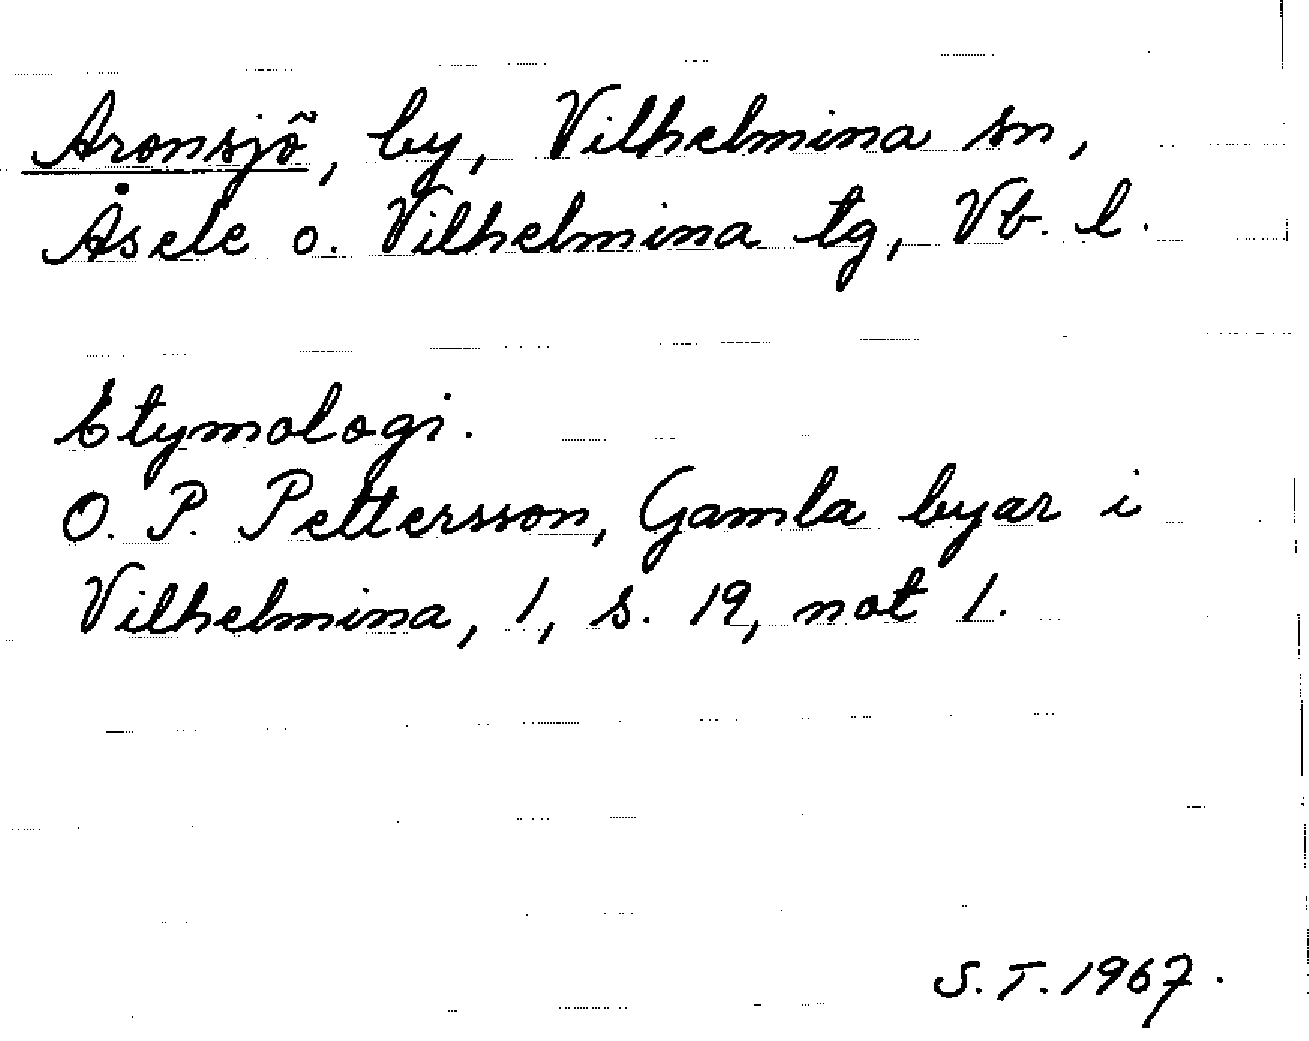 Aronsjö, by, Vilhelmina sn,
Åsele o. Vilhelmina tg, Vb. l.
Etymologi.
O. P. Pettersson, Gamla byar i
Vilhelmina, 1, s. 19, not 1.
S. T. 1967.